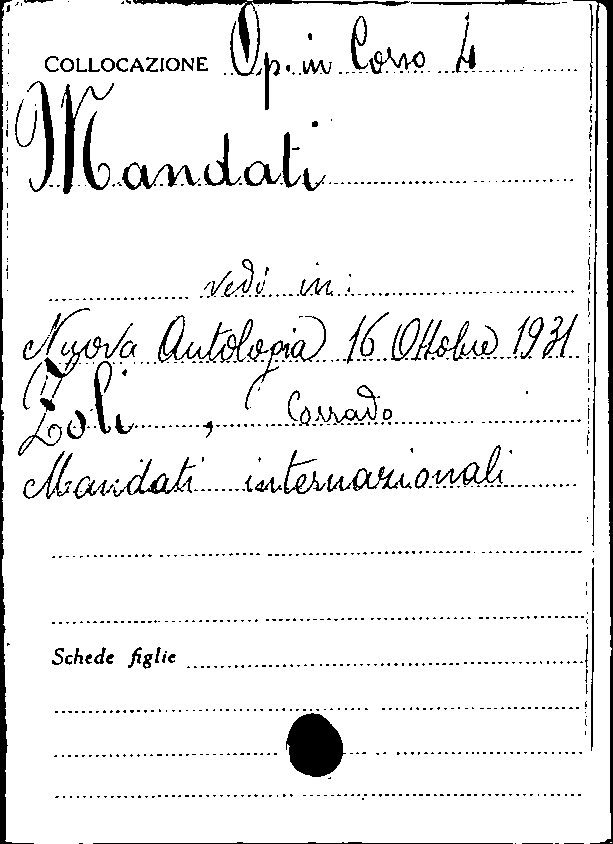 COLLOCAZIONE Op. in Corso 4
Mandati
vedi in:
Nuova Antologia 16 Ottobre 1931
Zoli, Corrado
Mandati internazionali
Schede figlie